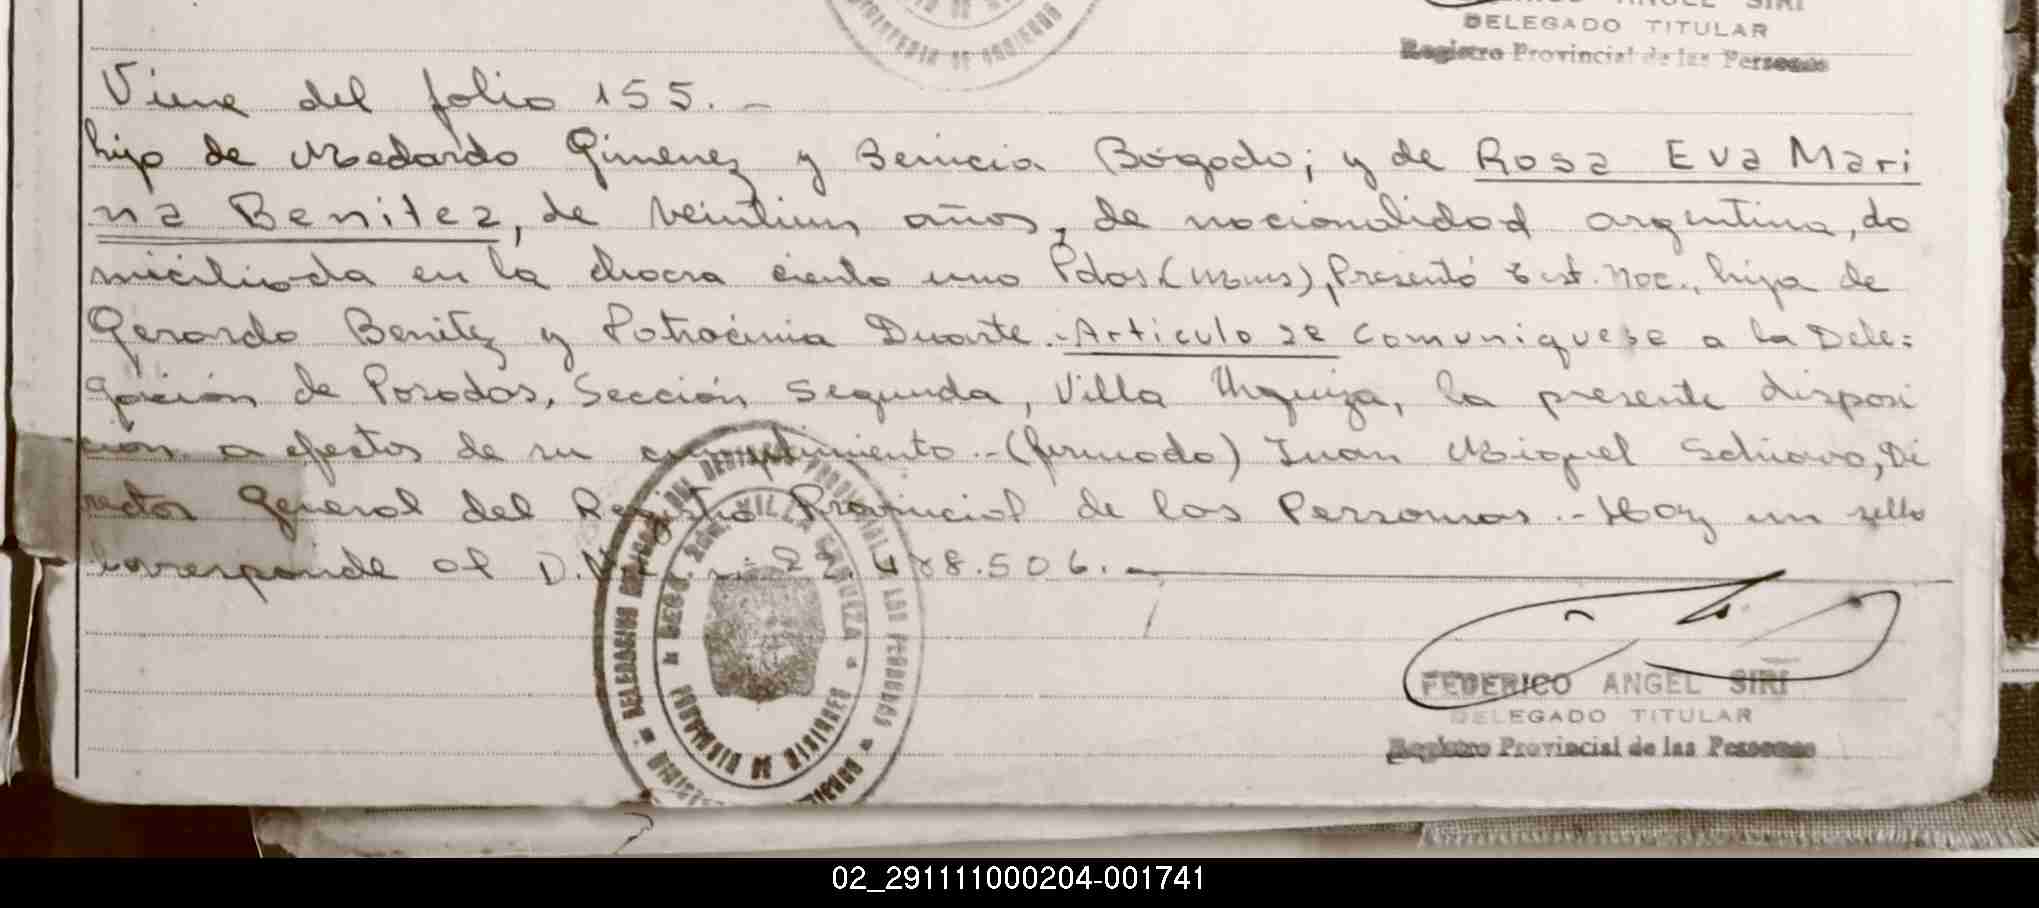 ANGEL SIRI
DELEGADO TITULAR
Registro Provincial de las Personas
Viene del folio 155.-
hijo de Medardo Gimenez y Benicia Bogado; y de Rosa Eva Mari
na Benitez, de veintiun años, de nacionalidad argentina, do
miciliada en la chacra ciento uno Pdas (Mnes), Presentó Cert. Nac., hija de
Gerardo Benitez y Patrocinia Duarte.- Articulo 2º Comuniquese a la Dele=
gación de Posadas, Sección Segunda, Villa Urquiza, la presente disposi
ción a efectos de su cumplimiento.-(firmado) Juan Miguel Schiavo, Di
rector General del Registro Provincial de las Personas.-Hay un sello
Corresponde al D.N.I. 488.506.-
DELEGACION
PROVINCIAL
LAS PERSONAS
SECC. 2DA. VILLA
PROVINCIA DE MISIONES
FEDERICO ANGEL SIRI
DELEGADO TITULAR
Registro Provincial de las Personas
02_291111000204-001741